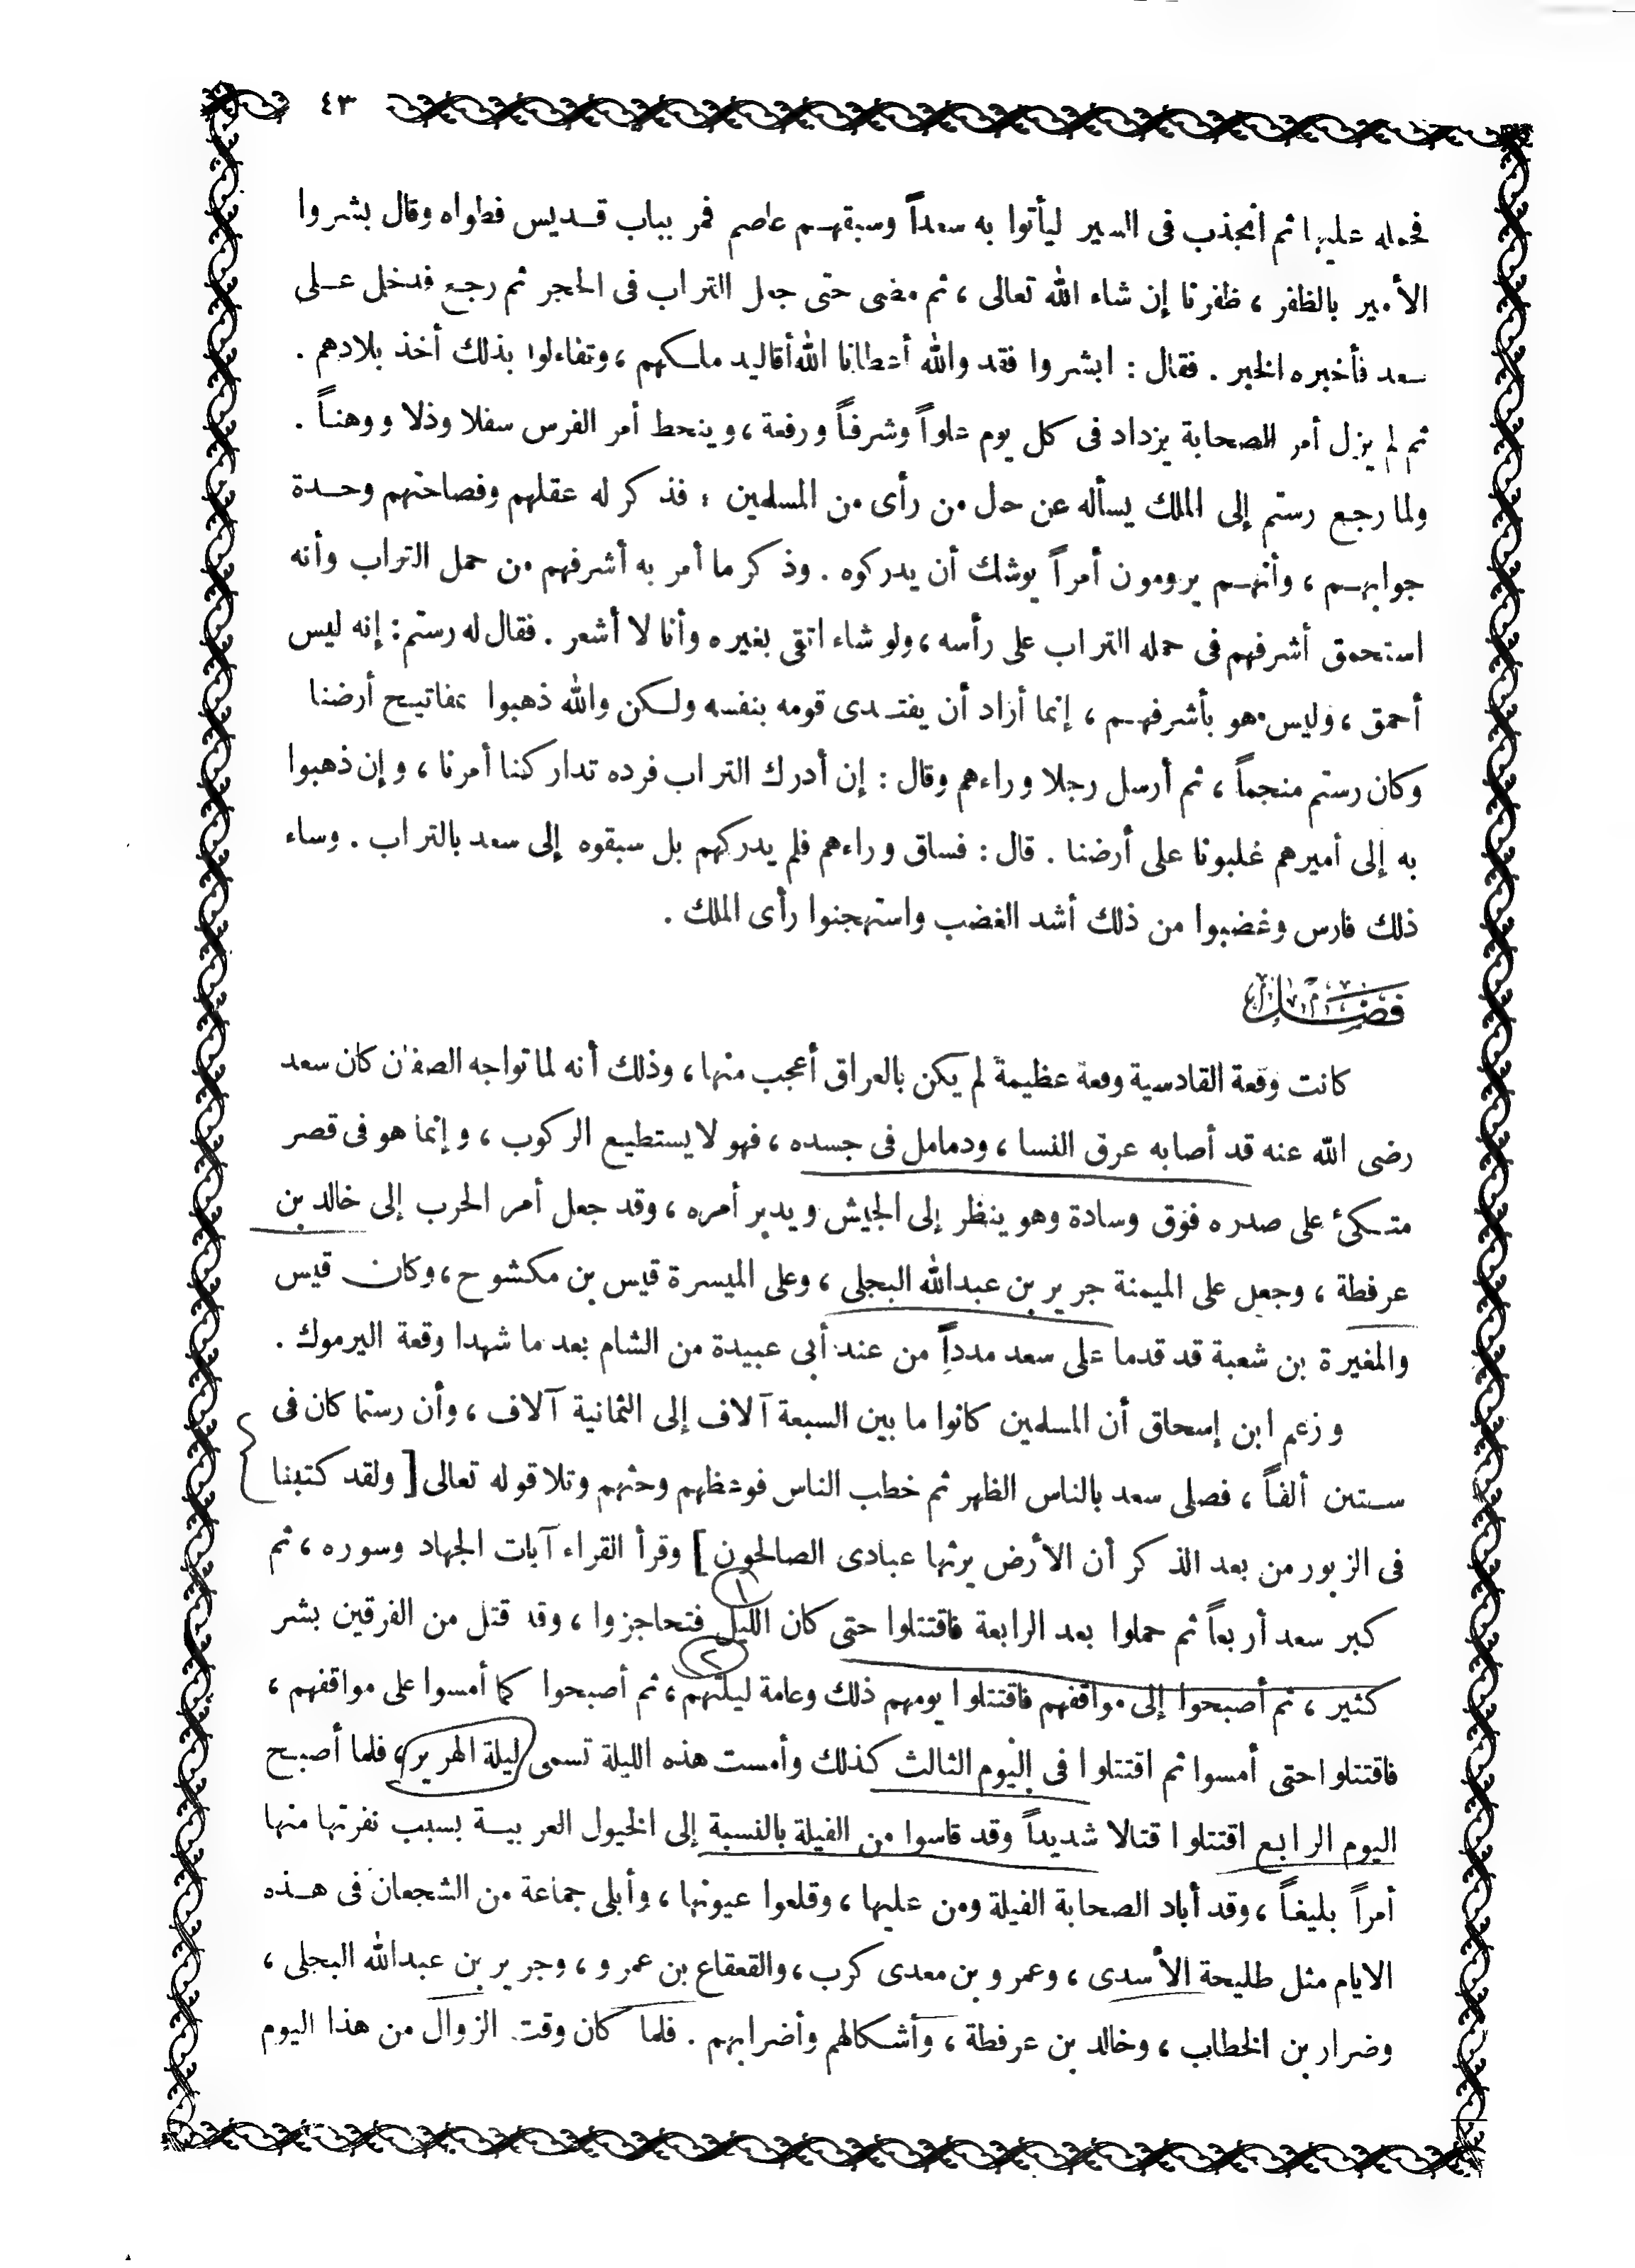 ٤٣
فحمله عليها ثم انجذب فى السير ليأتوا به سعداً وسبقهم عاصم فمر بباب قديس فطواه وقال بشروا
الأمير بالظفر ، ظفرنا إن شاء الله تعالى ، ثم مضى حتى جعل التراب فى الحجر ثم رجع فدخل على
سعد فأخبره الخبر . فقال : ابشروا فقد والله أعطانا الله أقاليد ملكهم ، وتفاءلوا بذلك أخذ بلادهم .
ثم لم يزل أمر الصحابة يزداد فى كل يوم علواً وشرفاً ورفعة ، وينحط أمر الفرس سفلا وذلا ووهناً .
ولما رجع رستم إلى الملك يسأله عن حال من رأى من المسلمين : فذكر له عقلهم وفصاحتهم وحدة
جوابهم ، وأنهم يرومون أمراً يوشك أن يدركوه . وذكر ما أمر به أشرفهم من حمل التراب وأنه
استحمق أشرفهم فى حمله التراب على رأسه ، ولو شاء اتقى بغيره وأنا لا أشعر . فقال له رستم : إنه ليس
أحمق ، وليس هو بأشرفهم ، إنما أراد أن يفتدى قومه بنفسه ولكن والله ذهبوا بمفاتيح أرضنا
وكان رستم منجماً ، ثم أرسل رجلا وراءهم وقال : إن أدرك التراب فرده تداركنا أمرنا ، وإن ذهبوا
به إلى أميرهم غلبونا على أرضنا . قال : فساق وراءهم فلم يدركهم بل سبقوه إلى سعد بالتراب . وساء
ذلك فارس وغضبوا من ذلك أشد الغضب واستهجنوا رأى الملك .
فصل
كانت وقعة القادسية وقعة عظيمة لم يكن بالعراق أعجب منها ، وذلك أنه لما تواجه الصفان كان سعد
رضى الله عنه قد أصابه عرق النسا ، ودمامل فى جسده ، فهو لا يستطيع الركوب ، وإنما هو فى قصر
متكئ على صدره فوق وسادة وهو ينظر إلى الجيش ويدبر أمره ، وقد جعل أمر الحرب إلى خالد بن
عرفطة ، وجعل على الميمنة جرير بن عبدالله البجلى ، وعلى الميسرة قيس بن مكشوح ، وكان قيس
والمغيرة بن شعبة قد قدما على سعد مدداً من عند أبى عبيدة من الشام بعد ما شهدا وقعة اليرموك .
وزعم ابن إسحاق أن المسلمين كانوا ما بين السبعة آلاف إلى الثمانية آلاف ، وأن رستما كان فى
ستين ألفاً ، فصلى سعد بالناس الظهر ثم خطب الناس فوعظهم وحثهم وتلا قوله تعالى [ ولقد كتبنا
فى الزبور من بعد الذكر أن الأرض يرثها عبادى الصالحون ] وقرأ القراء آيات الجهاد وسوره ، ثم
١
كبر سعد أربعاً ثم حملوا بعد الرابعة فاقتتلوا حتى كان الليل فتحاجزوا ، وقد قتل من الفرقين بشر
٢
كثير ، ثم أصبحوا إلى مواقفهم فاقتتلوا يومهم ذلك وعامة ليلتهم ، ثم أصبحوا كما أمسوا على مواقفهم ،
فاقتتلوا حتى أمسوا ثم اقتتلوا فى اليوم الثالث كذلك وأمست هذه الليلة تسمى ليلة الهرير ، فلما أصبح
اليوم الرابع اقتتلوا قتالا شديداً وقد قاسوا من الفيلة بالنسبة إلى الخيول العربية بسبب نفرتها منها
أمراً بليغاً ، وقد أباد الصحابة الفيلة ومن عليها ، وقلعوا عيونها ، وأبلى جماعة من الشجعان فى هذه
الايام مثل طليحة الأسدى ، وعمرو بن معدى كرب ، والقعقاع بن عمرو ، وجرير بن عبدالله البجلى ،
وضرار بن الخطاب ، وخالد بن عرفطة ، وأشكالهم وأضرابهم . فلما كان وقت الزوال من هذا اليوم